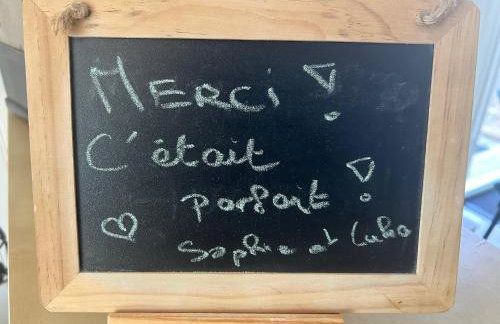 MERCI !
C'était
parfait !
Sophie et